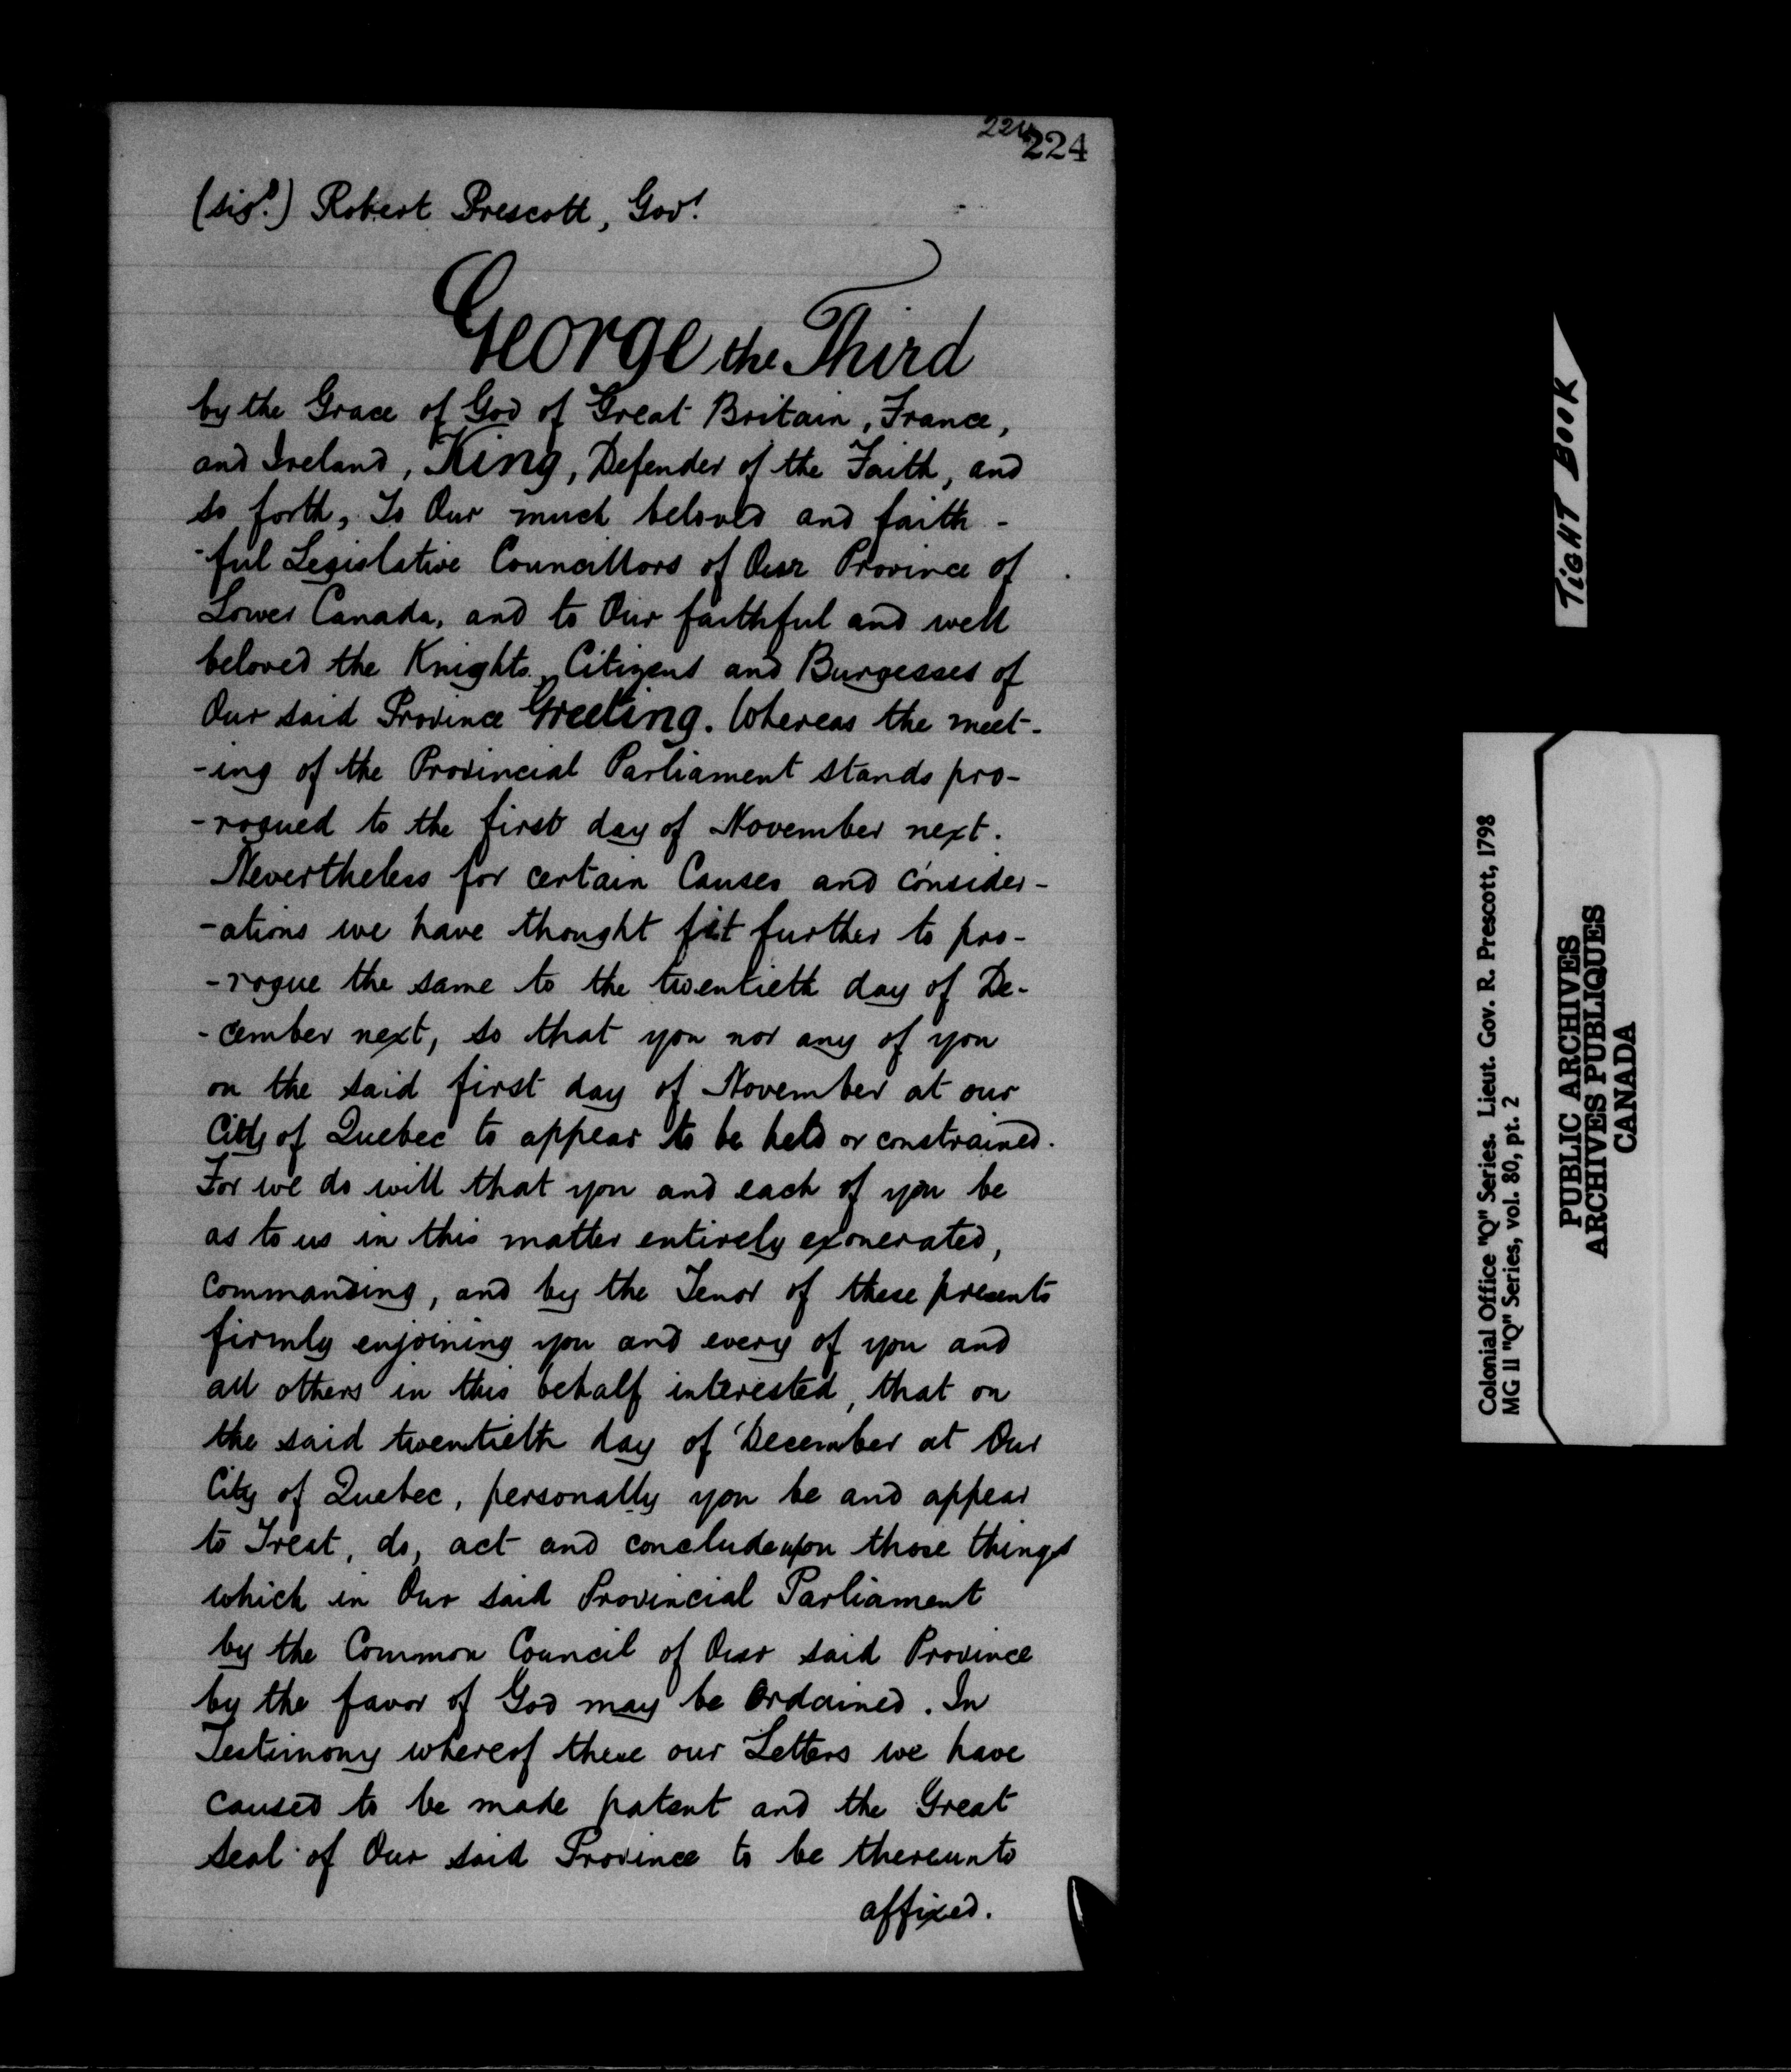 224
224
(sigd.) Robert Prescott, Govr.
George the Third
by the Grace of God of Great Britain, France,
and Ireland, King, Defender of the Faith, and
so forth, To Our much beloved and faith-
-ful Legislative Councillors of Our Province of
Lower Canada, and to Our faithful and well
beloved the Knights, Citizens and Burgesses of
Our said Province Greeting. Whereas the meet-
-ing of the Provincial Parliament stands pro-
-rogued to the first day of November next.
Nevertheless for certain Causes and consider-
-ations we have thought fit further to pro-
-rogue the same to the twentieth day of De-
-cember next, so that you nor any of you
on the said first day of November at our
City of Quebec to appear to be held or constrained.
For we do will that you and each of you be
as to us in this matter entirely exonerated,
commanding, and by the Tenor of these presents
firmly enjoining you and every of you and
all others in this behalf interested, that on
the said twentieth day of December at Our
City of Quebec, personally you be and appear
to Treat, do, act and conclude upon those things
which in Our said Provincial Parliament
by the Common Council of Our said Province
by the favor of God may be Ordained. In
Testimony whereof these our Letters we have
caused to be made patent and the Great
Seal of Our said Province to be thereunto
affixed.
TIGHT BOOK
Colonial Office "Q" Series. Lieut. Gov. R. Prescott, 1798
MG 11 "Q" Series, vol. 80, pt. 2
PUBLIC ARCHIVES
ARCHIVES PUBLIQUES
CANADA